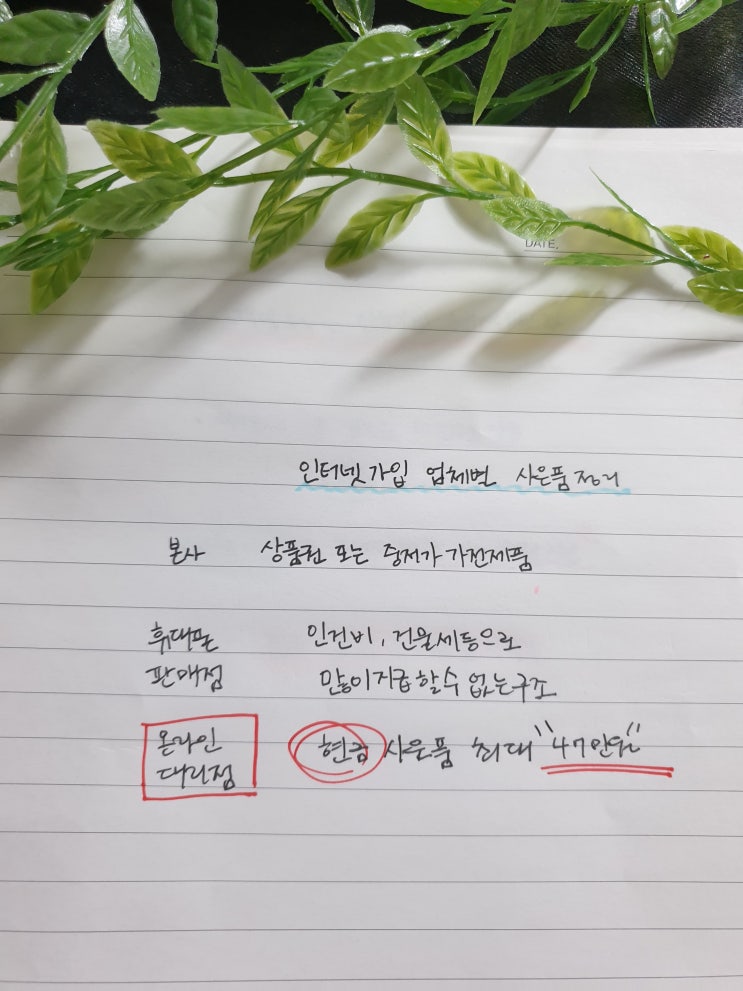 DATE.
인터넷가입 업체별 사은품정리
본사 상품권 또는 중저가 가전제품
휴대폰 인건비, 건물세등으로
판매점 많이지급할수 없는구조
온라인
대리점
현금 사은품 최대 "47만원"